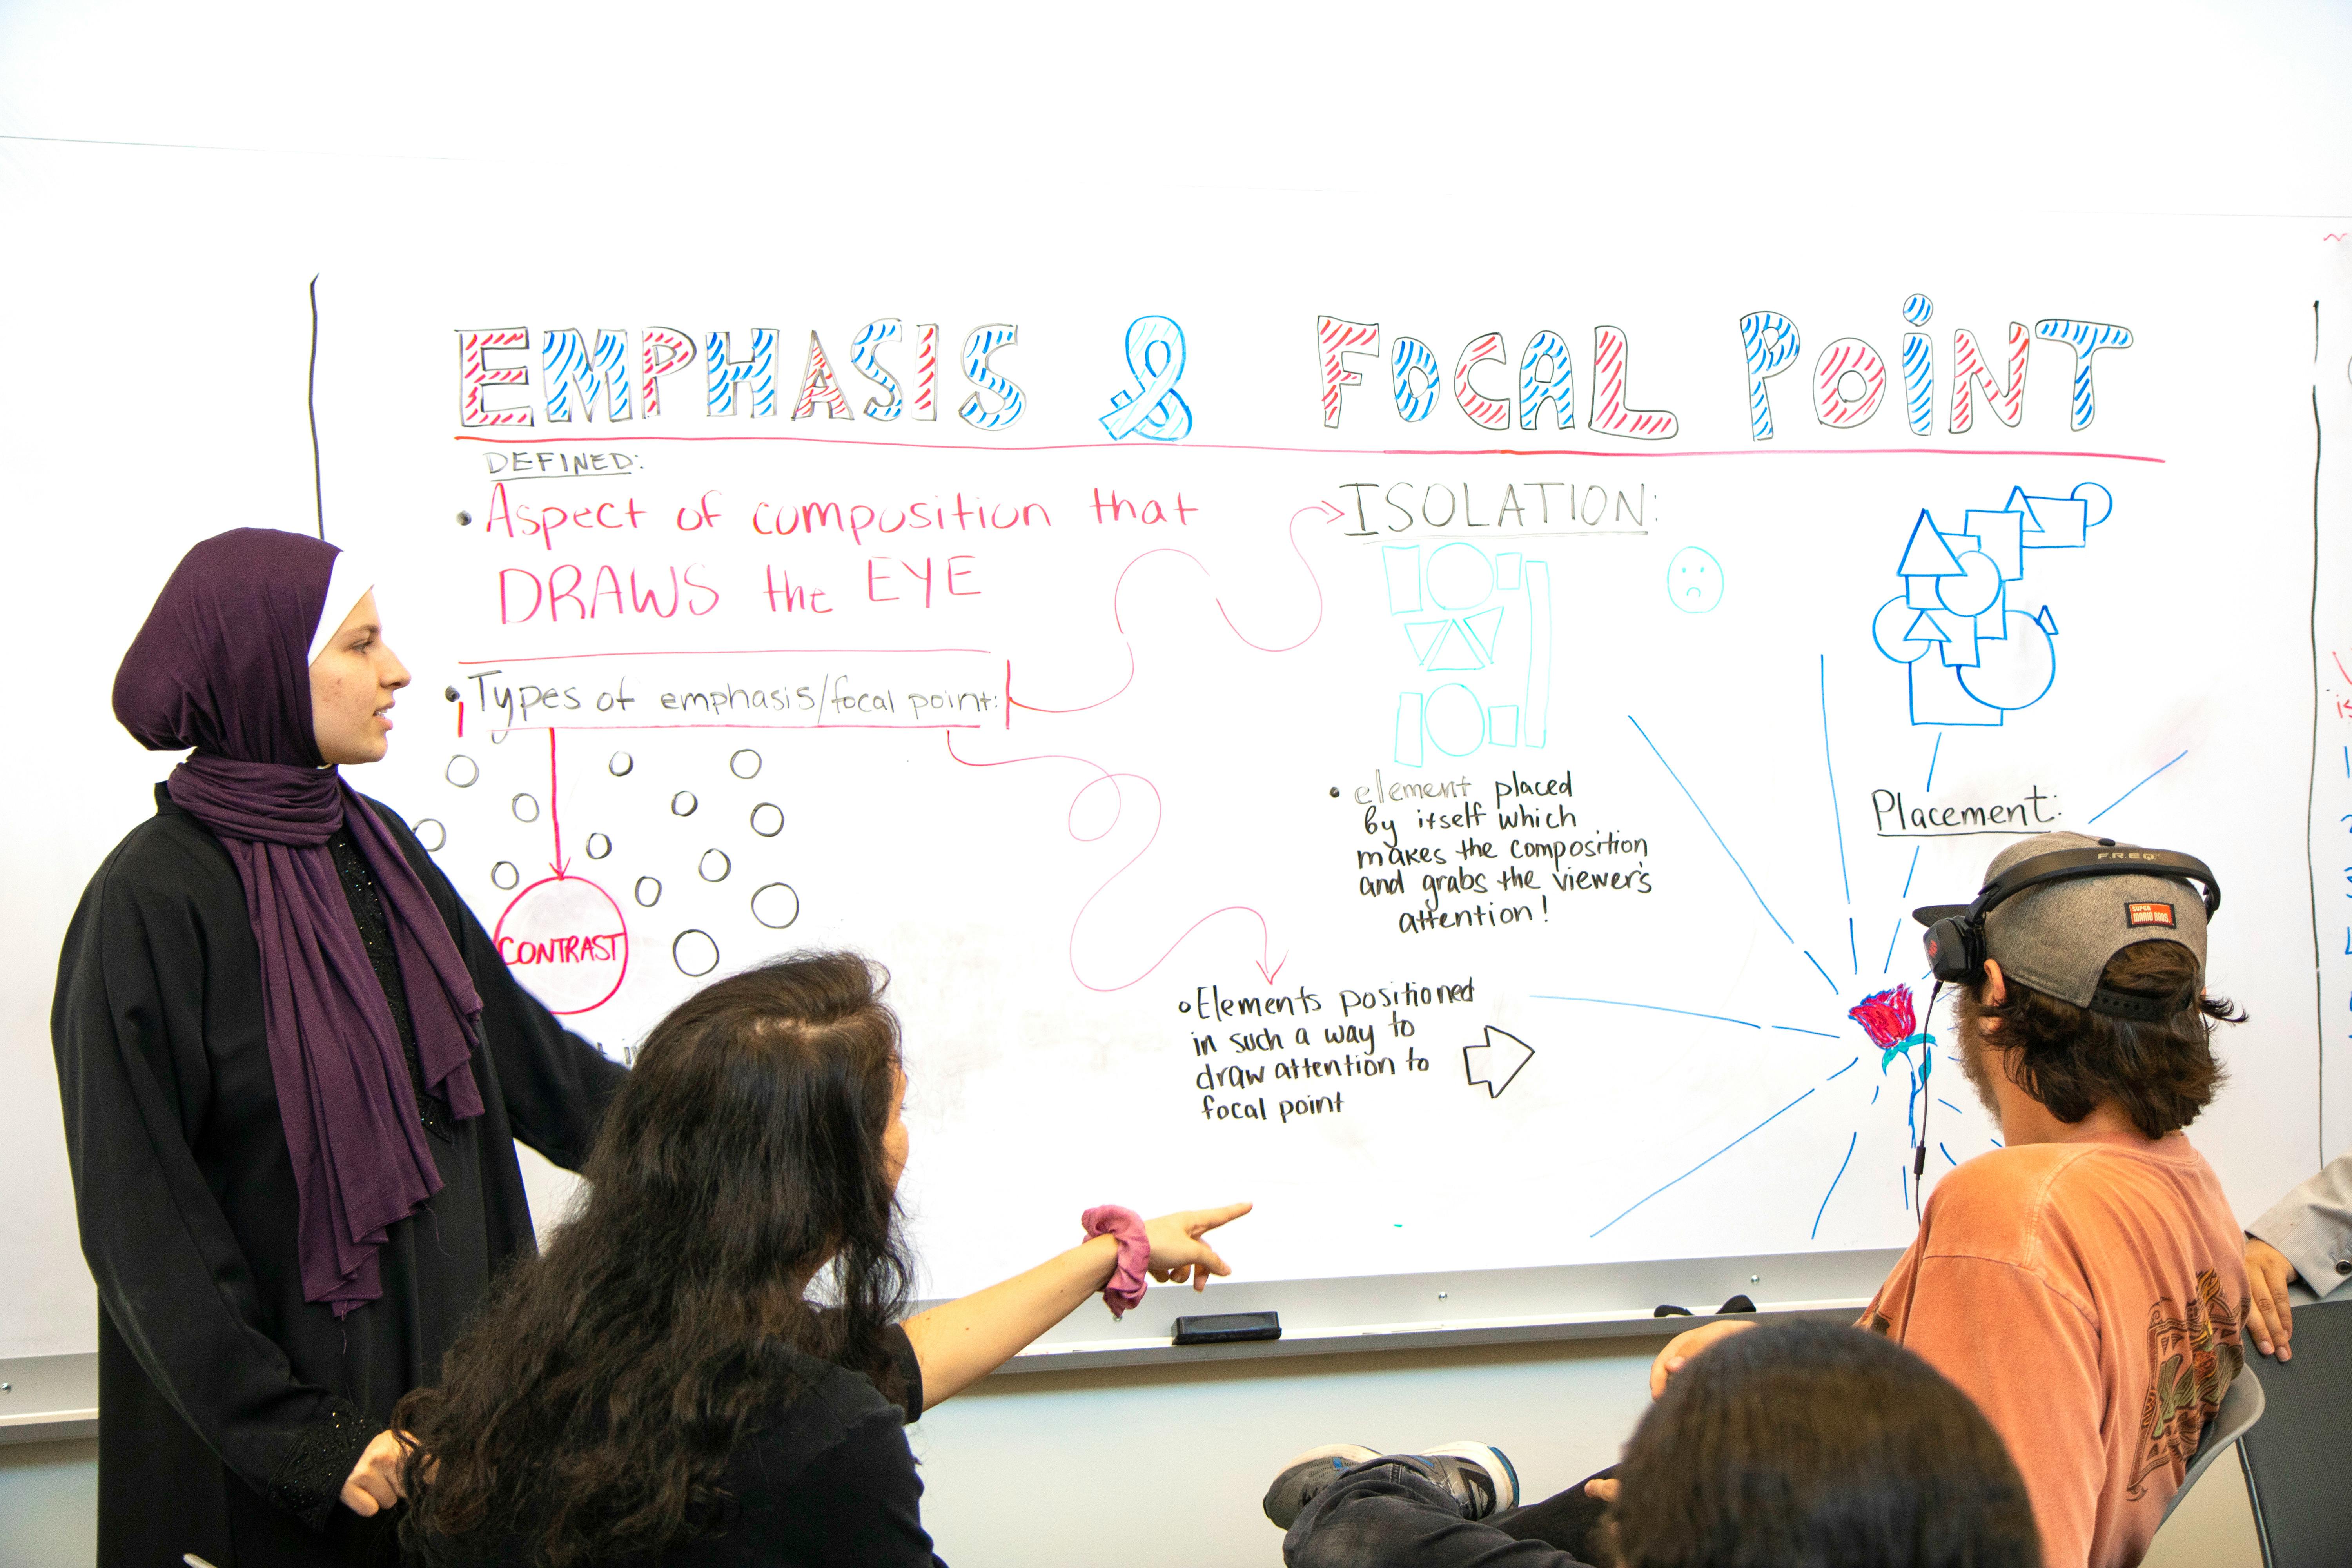 EMPHASIS & FOCAL POiNT
DEFINED:
• Aspect of composition that
DRAWS the EYE
• Types of emphasis/focal point:
CONTRAST
ISOLATION:
• element placed
by itself which
makes the composition
and grabs the viewer's
attention!
Placement:
• Elements positioned
in such a way to
draw attention to
focal point
F.R.E.Q
SUPER
MARIO BROS.